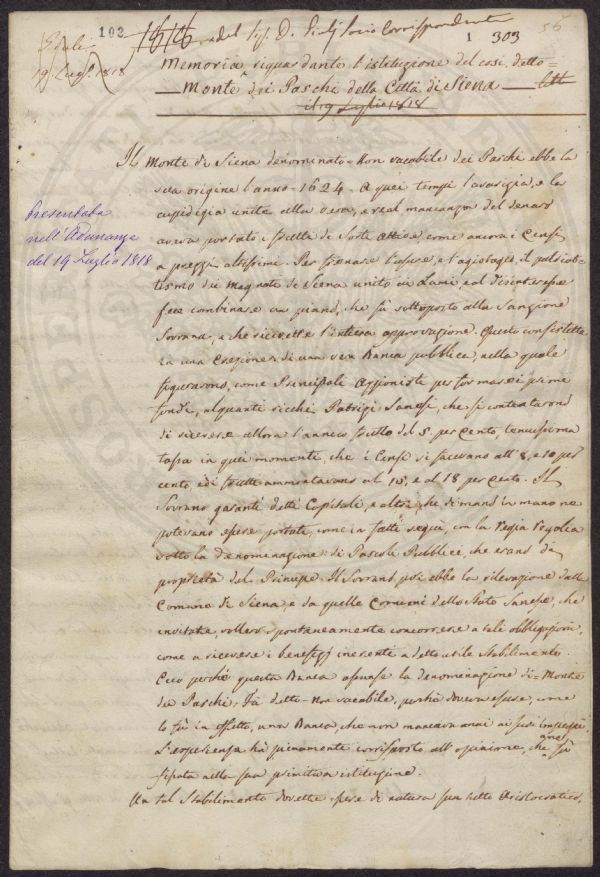 102
del Sig. D. Giulj Socio Corrispondente
1 303
56
19 Lug. 1818
Memoria riguardante l'istituzione del così detto=
Monte dei Paschi della Città di Siena
il 19 Luglio 1818
Il Monte di Siena denominato = Non vacabile dei Paschi ebbe la
sua origine l'anno = 1624. A quei tempi l'avarizia, e la
cupidigia unite alla vera, e real mancanza del denaro
aveva portato i frutti di sorte attiva come ancora i Censi
a prezzi altissimi. Per frenare l'usure, e l'agiotage, il patriot-
tismo dei Magnati di Siena unito ai Lumi, e al disinteresse
fece combinare un piano, che fù sottoposto alla Sanzione
Sovrana, e che ricevette l'intiera approvazione. Questo consisteva
in una Erezione di una vera Banca pubblica, nella quale
figurarono, come Principali azzionisti per formarsi i primi
fondi, alquanti ricchi Patrizi Sanesi, che si contentarono
di ricevere allora l'annuo frutto del 5. per cento, tenuissima
tassa in quei momenti, che i Censi si facevano all' 8, e 10 per
cento, ed i frutti ammontavano al 15, e al 18 per cento. Il
Sovrano garantì detti Capitali, e altri, che di mano in mano ne
potevano essere portati, come in fatti seguì, con la Regia Regalia
sotto la denominazione di Pascoli Pubblici, che erano di
proprietà del Principe. Il Sovrano poi ebbe la rilevazione dalla
Comune di Siena, e da quelle Comuni dello Stato Sanese, che
invitate, vollero spontaneamente concorrere a tali obbligazioni,
come a ricevere i benefizj inerenti a detto utile Stabilimento.
Ecco perchè questa Banca assunse la denominazione di = Monte
dei Paschi; Fù detto = Non vacabile, perchè doveva essere, come
lo fù in effetto, una Banca, che non mancava mai ai suoi impegni.
L'esperienza hà pienamente corrisposto all'opinione, che ne fù
fissata nella sua primitiva istituzione.
Un tal Stabilimento dovette essere di natura sua tutto Aristocratico,
Presentata
nell'Adunanza
del 19 Luglio 1818